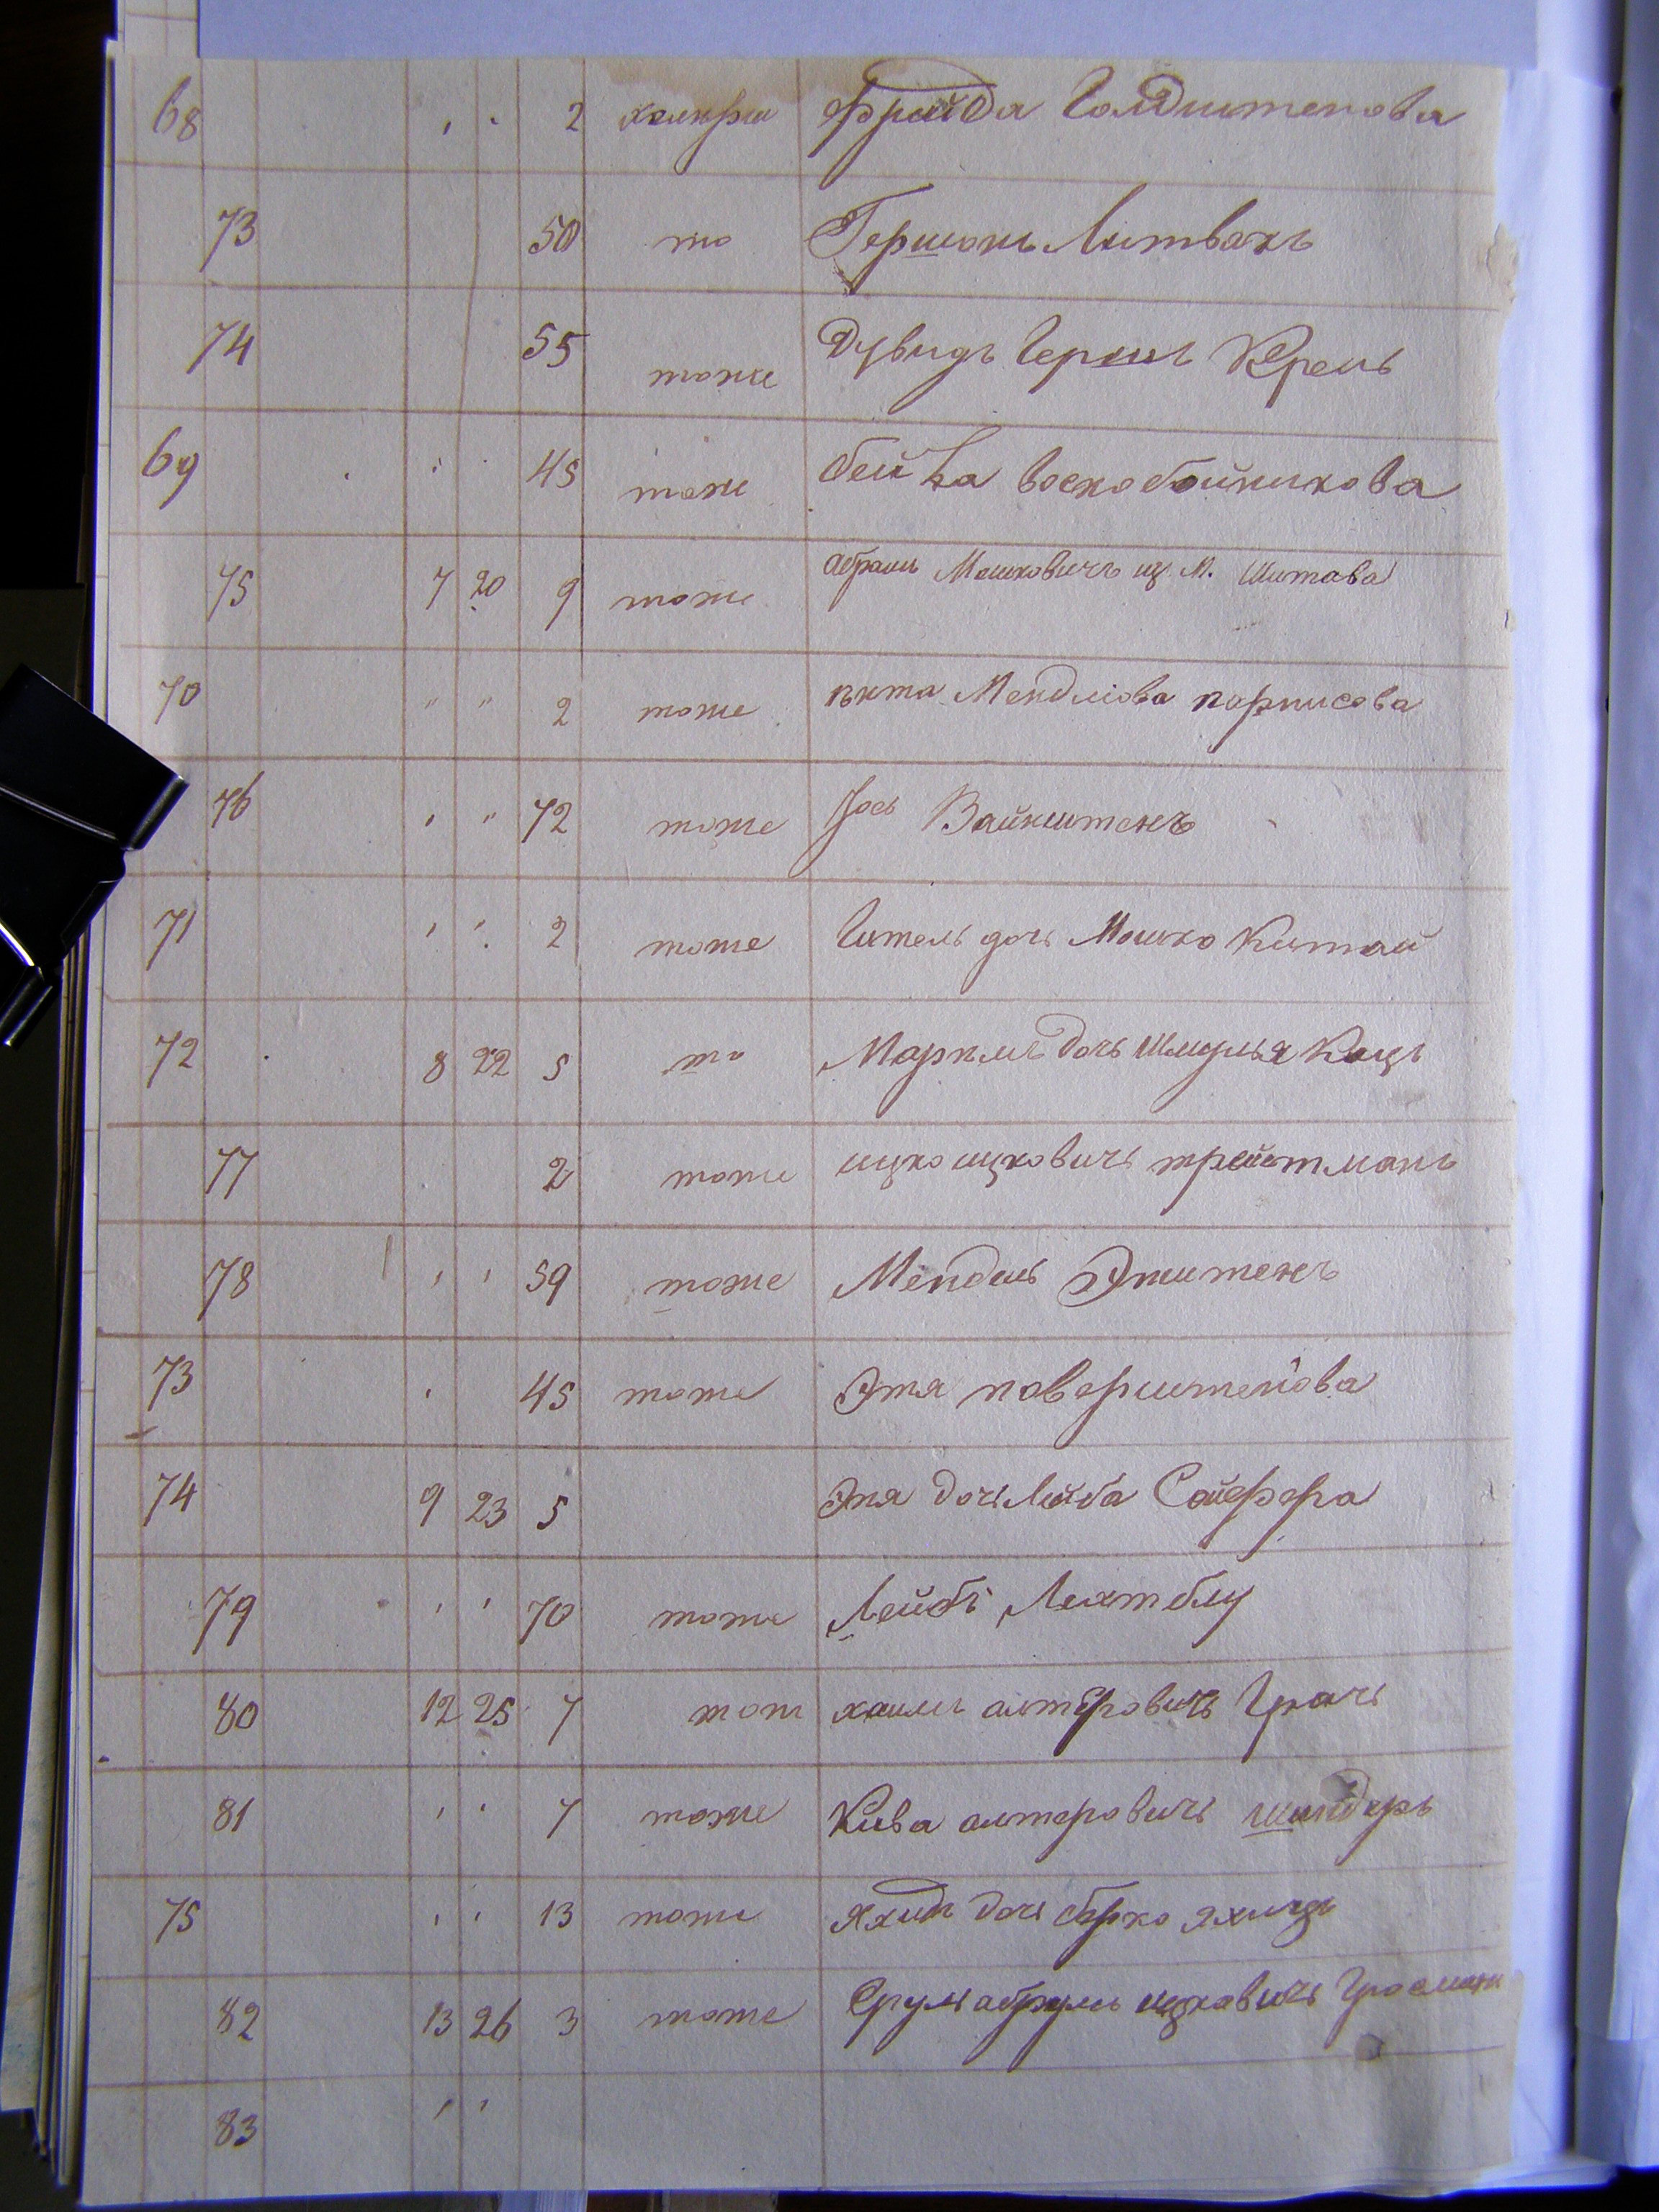 68 , , 2 холера Фрайда Голдштенова
73 50 то Гершонъ Литвакъ
74 55 тоже Дувидъ Гершъ Крель
69 , , 45 тоже бейла воскобойникова
75 7 20 9 тоже абрамъ Мошковичъ из М. Шитава
70 " " 2 тоже Мендлiова парнисова
76 , " 72 тоже Іось Вайнштенъ
71 , , 2 тоже Гитель дочь Мошко Китай
72 8 22 5 то дочь Шмулья Кацъ
77 2 тоже ицко ицковичъ тройтманъ
78 , , 59 тоже Мендель Эпштенъ
73 , 45 тоже Этя
74 9 23 5 Эня дочь Лейба Сойфера
79 , , 70 тоже Лейбъ Лихтблу
80 12 25 7 тоже хаимъ алтеровичъ Грачъ
81 , , 7 тоже Кива алтеровичъ шнидеръ
75 , , 13 тоже дочь берко
82 13 26 3 тоже Срулъ абрумъ ицковичъ Гросманъ
83 , ,